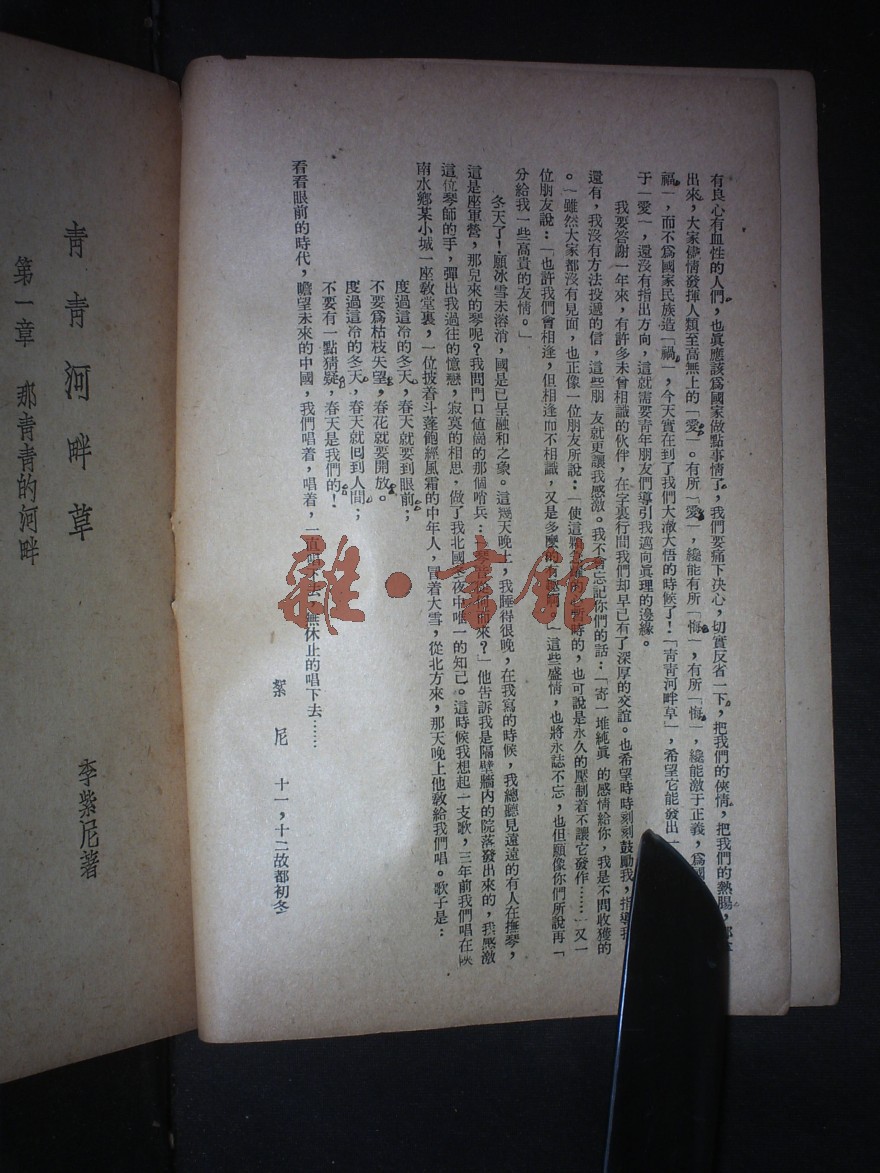 有良心有血性的人們，也眞應該爲國家做點事情了，我們要痛下决心，切實反省一下，把我們的俠情，把我們的熱腸，
出來，大家儘情發揮人類至高無上的「愛」。有所「愛」，纔能有所「悔」，有所「悔」，纔能激于正義，爲國
福」，而不爲國家民族造「禍」，今天實在到了我們大澈大悟的時候了！「靑靑河畔草」，希望它能發出一
于「愛」，還沒有指出方向，這就需要靑年朋友們導引我邁向眞理的邊緣。
我要答謝一年來，有許多未曾相識的伙伴，在字裏行間我們却早已有了深厚的交誼。也希望時時刻刻鼓勵我，指導我
還有，我沒有方法投遞的信，這些朋友就更讓我感激。我不會忘記你們的話：「寄一堆純眞的感情給你，我是不問收獲的
。」雖然大家都沒有見面，也正像一位朋友所說：「使這 暫時的，也可說是永久的壓制着不讓它發作……」又一
位朋友說：「也許我們會相逢，但相逢而不相識，又是多麼的有 」這些盛情，也將永誌不忘，也但願像你們所說再「
分給我一些高貴的友情。」
冬天了！願冰雪未溶消，國是已呈融和之象。這幾天晚上，我睡得很晚，在我寫的時候，我總聽見遠遠的有人在撫琴，
這是座軍營，那兒來的琴呢？我問門口値崗的那個哨兵：「琴聲從何而來？」他告訴我是隔壁牆內的院落發出來的，我感激
這位琴師的手，彈出我過往的憶戀，寂寞的相思，做了我北國冬夜中唯一的知己。這時候我想起一支歌，三年前我們唱在陜
南水鄕某小城一座敎堂裏，一位披着斗蓬飽經風霜的中年人，冒着大雪，從北方來，那天晚上他敎給我們唱。歌子是：
度過這冷的冬天，春天就要到眼前；
不要爲枯枝失望，春花就要開放。
度過這冷的冬天，春天就回到人間；
不要有一點猜疑，春天是我們的！
看看眼前的時代，瞻望未來的中國，我們唱着，唱着，一直唱下去，無休止的唱下去……
紫尼 十一，十二故都初冬
靑靑河畔草
李紫尼著
第一章 那靑靑的河畔
雜·書館